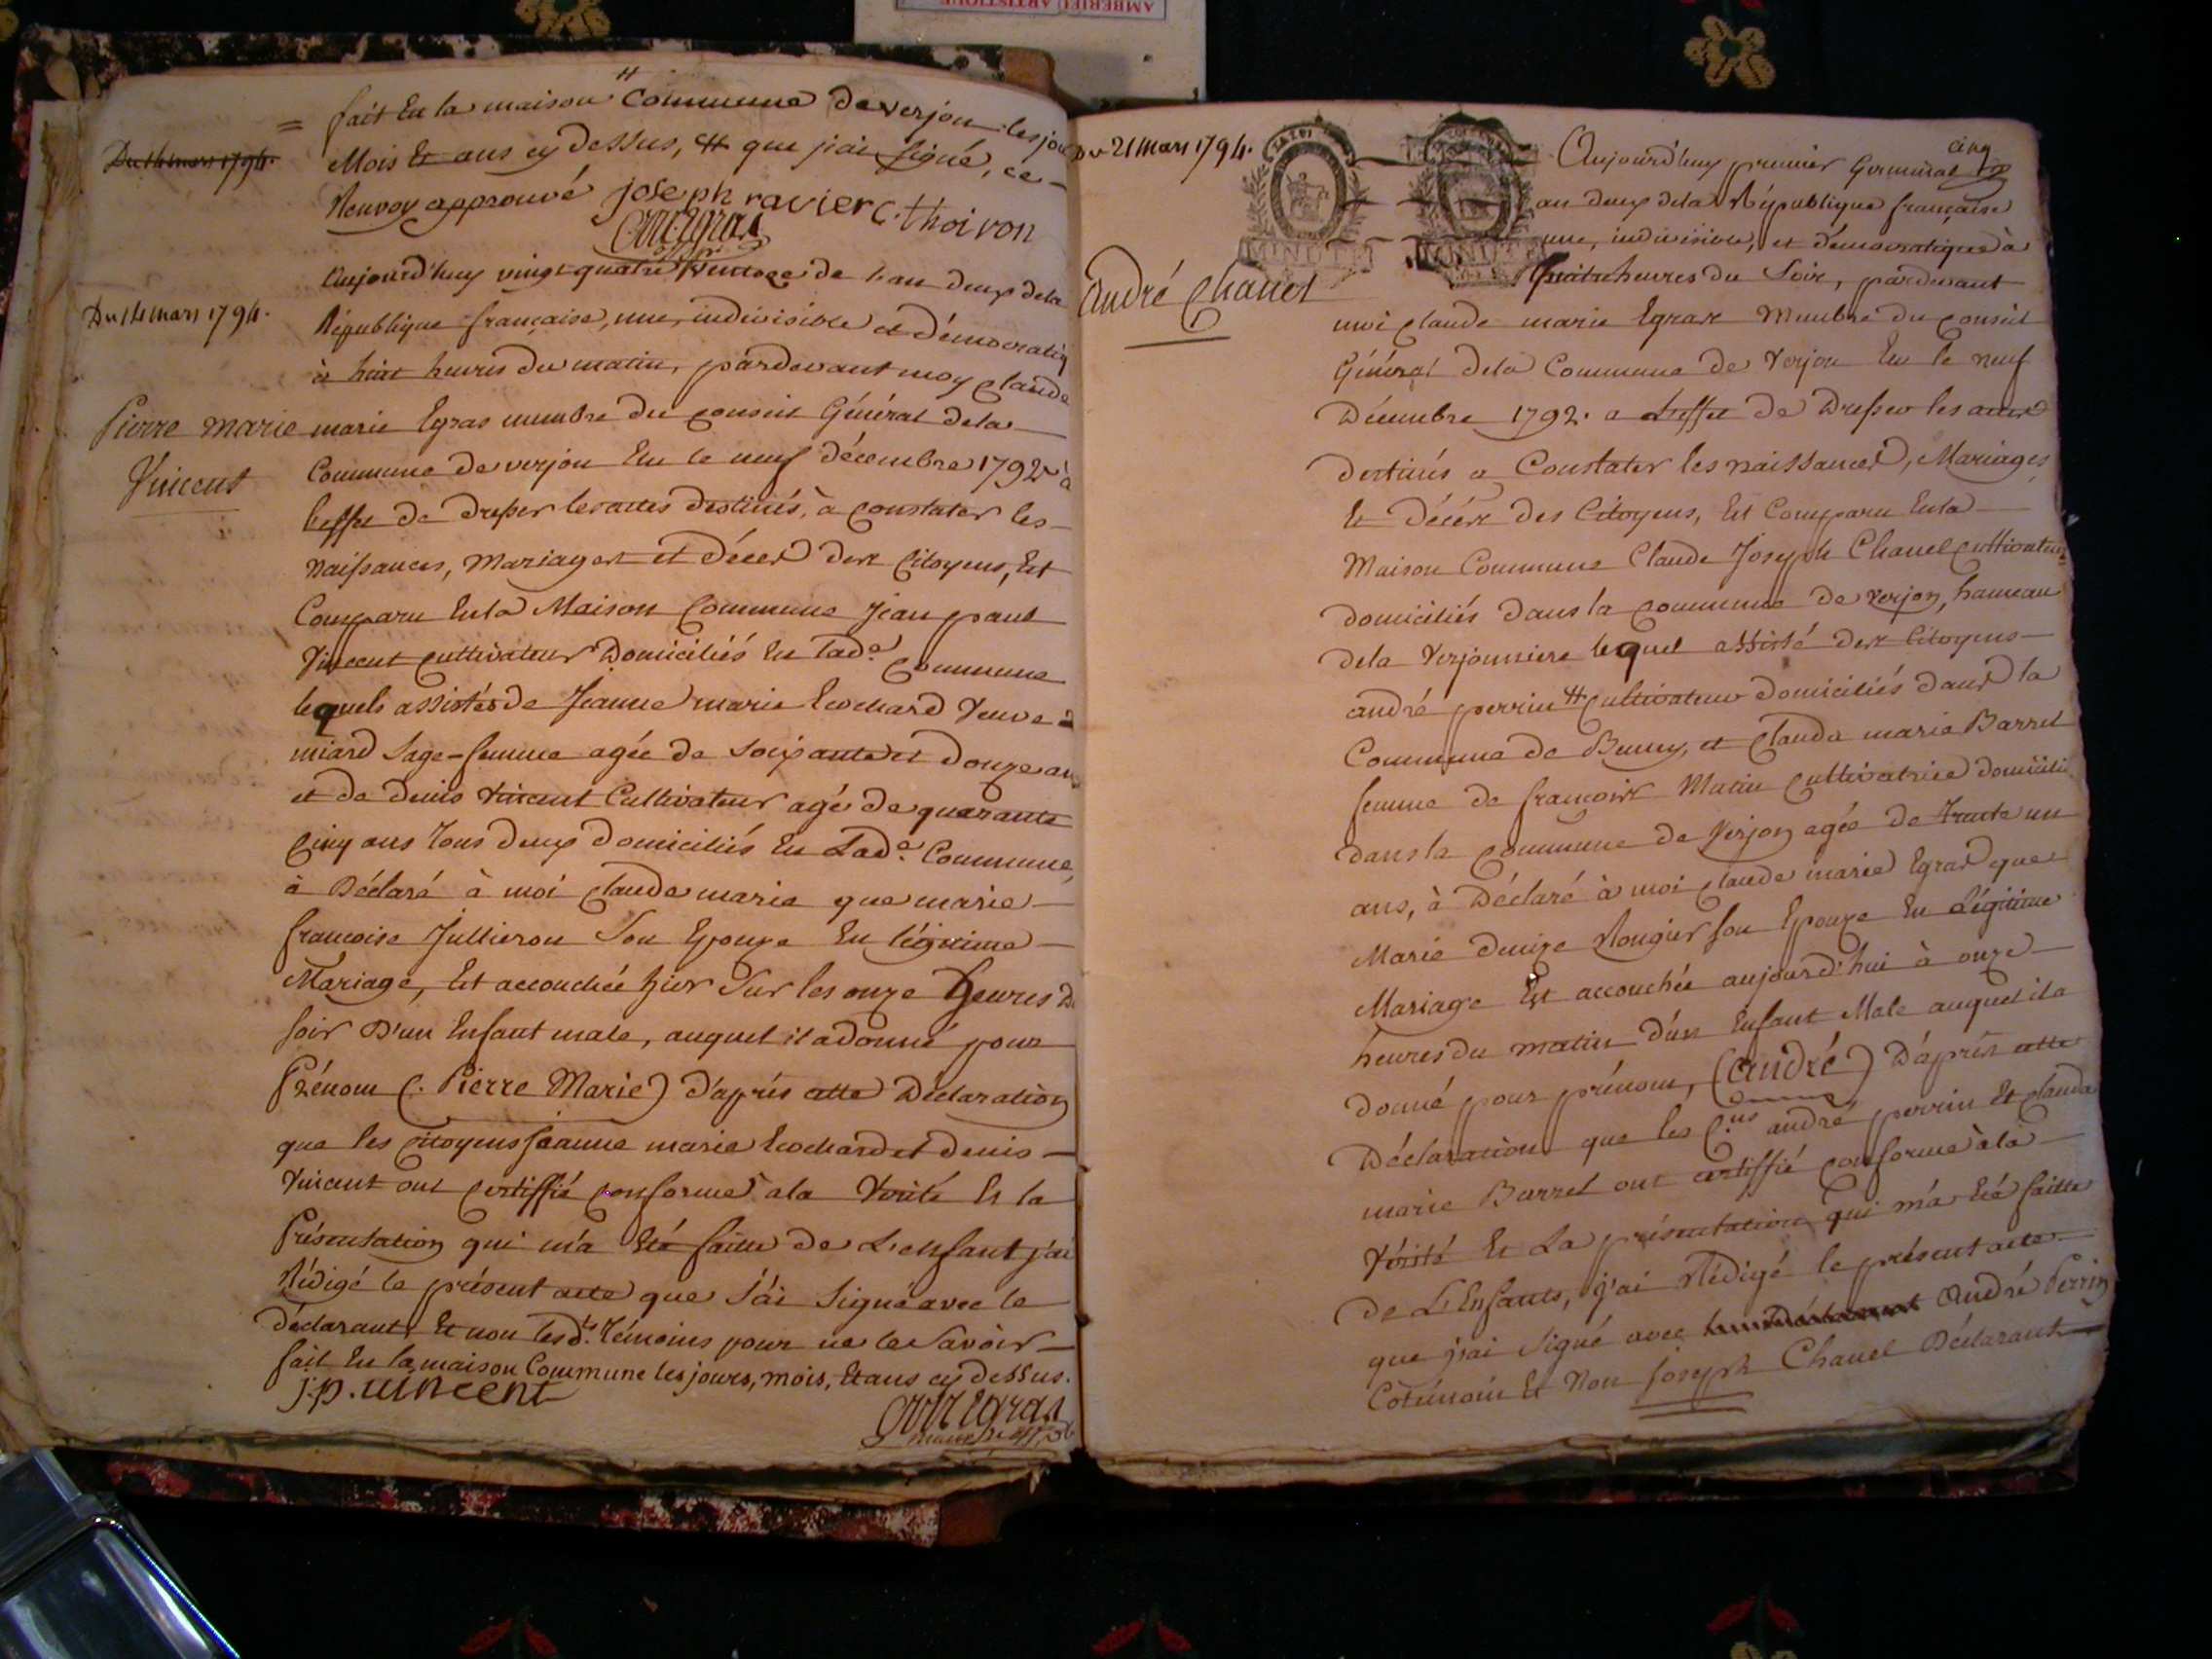 AMBERIEU ARTISTIQUE
fait En la maison Commune de verjon les jou
Du 14 mars 1794.
Mois Et ans cy dessus, # que j'ai signé, ce
Renvoy approuvé joseph ravier C. thoivon
CM Egras
Du 14 mars 1794.
Aujourd'huy vingt quatre Ventose de l'an deux dela
République française, une, indivisible et démocratiq
à huit heures du matin, pardevant moy Claude
Pierre marie
Vincent
marie Egras membre du conseil Général dela
Commune de verjon Elu le neuf décembre 1792 à
l'effet de dresser les actes destinés, à constater les
Naissances, Mariages et décès des Citoyens, Est
Comparu En la Maison Commune Jean paul
Vincent cultivateur Domiciliés En lad.e Commune
lequels assistés de Jeanne marie Ecochard Veuve
miard Sage-femme agée de Soixante et douze an
et de denis Vincent Cultivateur agé de quarante
Cinq ans tous deux domiciliés En Lad.e Commune,
à Déclaré à moi Claude marie que marie
francoise Jullieron Son Epouze En légitime
Mariage, Est accouchée hier Sur les onze heures D
soir D'un Enfant male, auquel il a donné pour
Prénom (. Pierre Marie) d'après cette Déclaration
que les citoyens Jeanne marie Ecochard et Denis
Vincent ont certiffié conforme ala Vérité Et la
Présentation qui m'a Eté faitte de L'enfant j'ai
Rédigé le présent acte que J'ai Signé avec le
déclarant, Et non les d.ts témoins pour ne le Savoir
fait En la maison Commune les jours, mois, Et ans cy dessus.
j.p. vincent
CM Egras
Du 21 mars 1794.
MINUTE
MINUTE
André Chanel
cinq
Aujourd'huy premier Germinal
an deux dela République française
une, indivisible, et démocratique à
Quatre heures du Soir, pardevant
moi Claude marie Egras Membre du Conseil
Général dela Commune de Verjon Elu le neuf
Décembre 1792. a L'effet de Dresser les actes
destinés a Constater les naissances, Mariages,
Et Décès des Citoyens, Est Comparu En la
Maison Commune Claude Joseph Chanel cultivateur
domiciliés dans la commune de Verjon, hameau
dela Verjonniere lequel assisté des Citoyens
andré perrin # cultivateur domiciliés dans la
Commune de Beny, et Claude marie Barrel
femme de francois Matin Cultivatrice domicili
dans la Commune de Verjon agée de trante un
ans, à Déclaré à moi Claude marie Egras que
Marie denize Rougier son Epouze En Légitime
Mariage Est accouchée aujourd'hui à onze
heures du matin d'un Enfant Male auquel il a
donné pour prénom, (André) D'après cette
Déclaration que les C.ns andré perrin Et Claude
marie Barrel ont certiffié conforme à la
Vérité Et La présentation qui m'a Eté faitte
de L'Enfants, j'ai Rédigé le présent acte
que j'ai Signé avec André Perrin
Cotémoin Et Non Joseph Chanel Déclarant